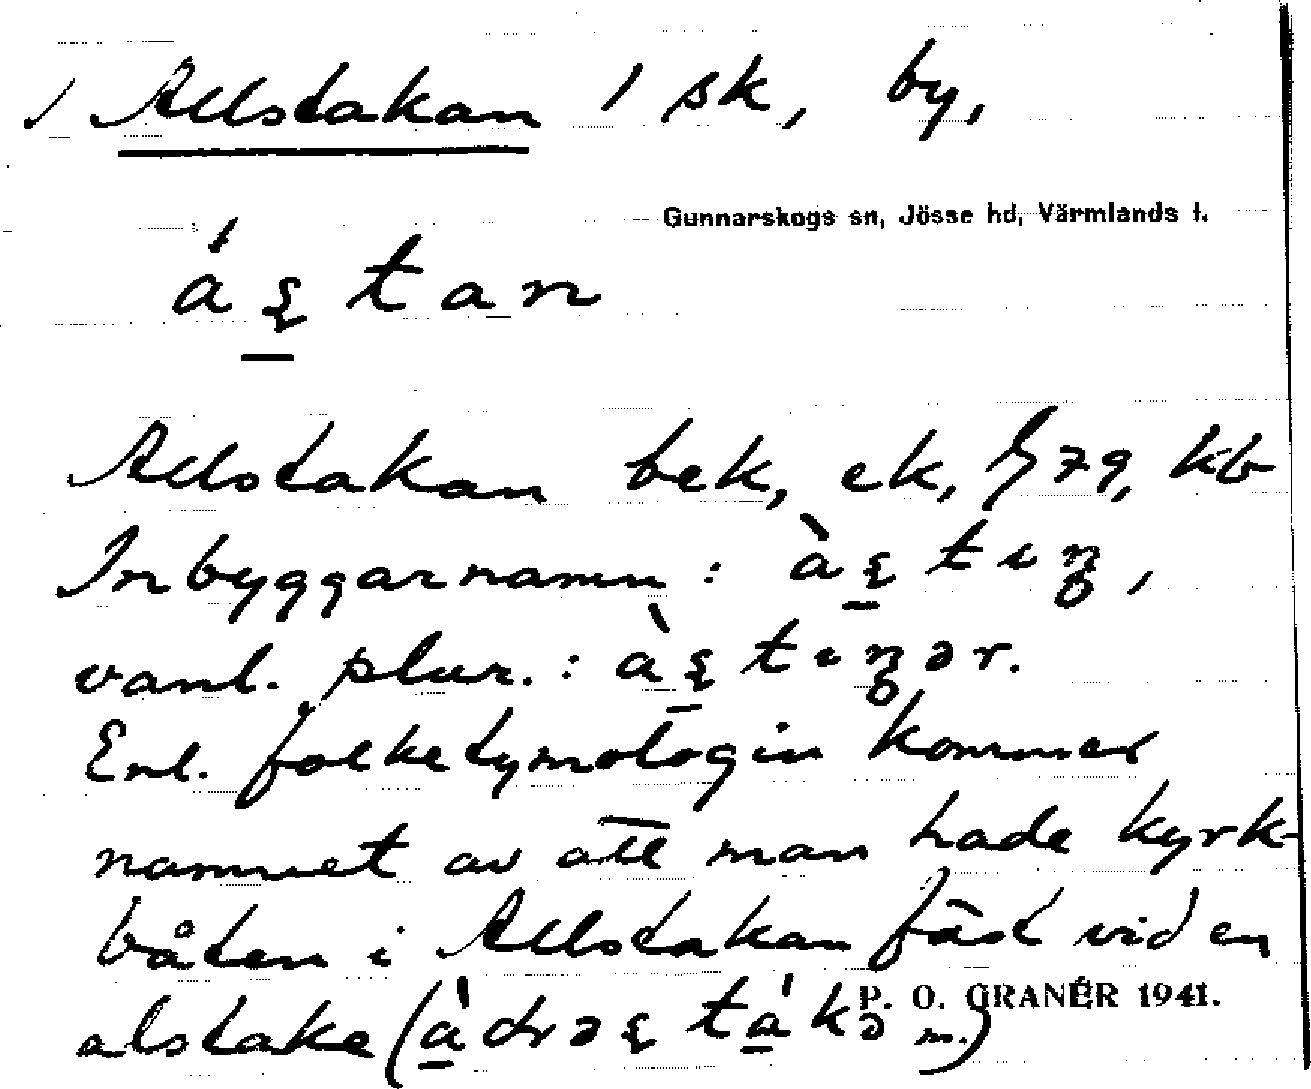 / Allstakan 1 sk, by,
Gunnarskogs sn, Jösse hd, Värmlands l.
Allstakan bek, ek, G79, kb
Inbyggarnamn:
vanl. plur.:
Enl. folketymologin kommer
namnet av att man hade kyrk-
båten i Allstakan fäst vid en
P. O. GRANÉR 1941.
alstake